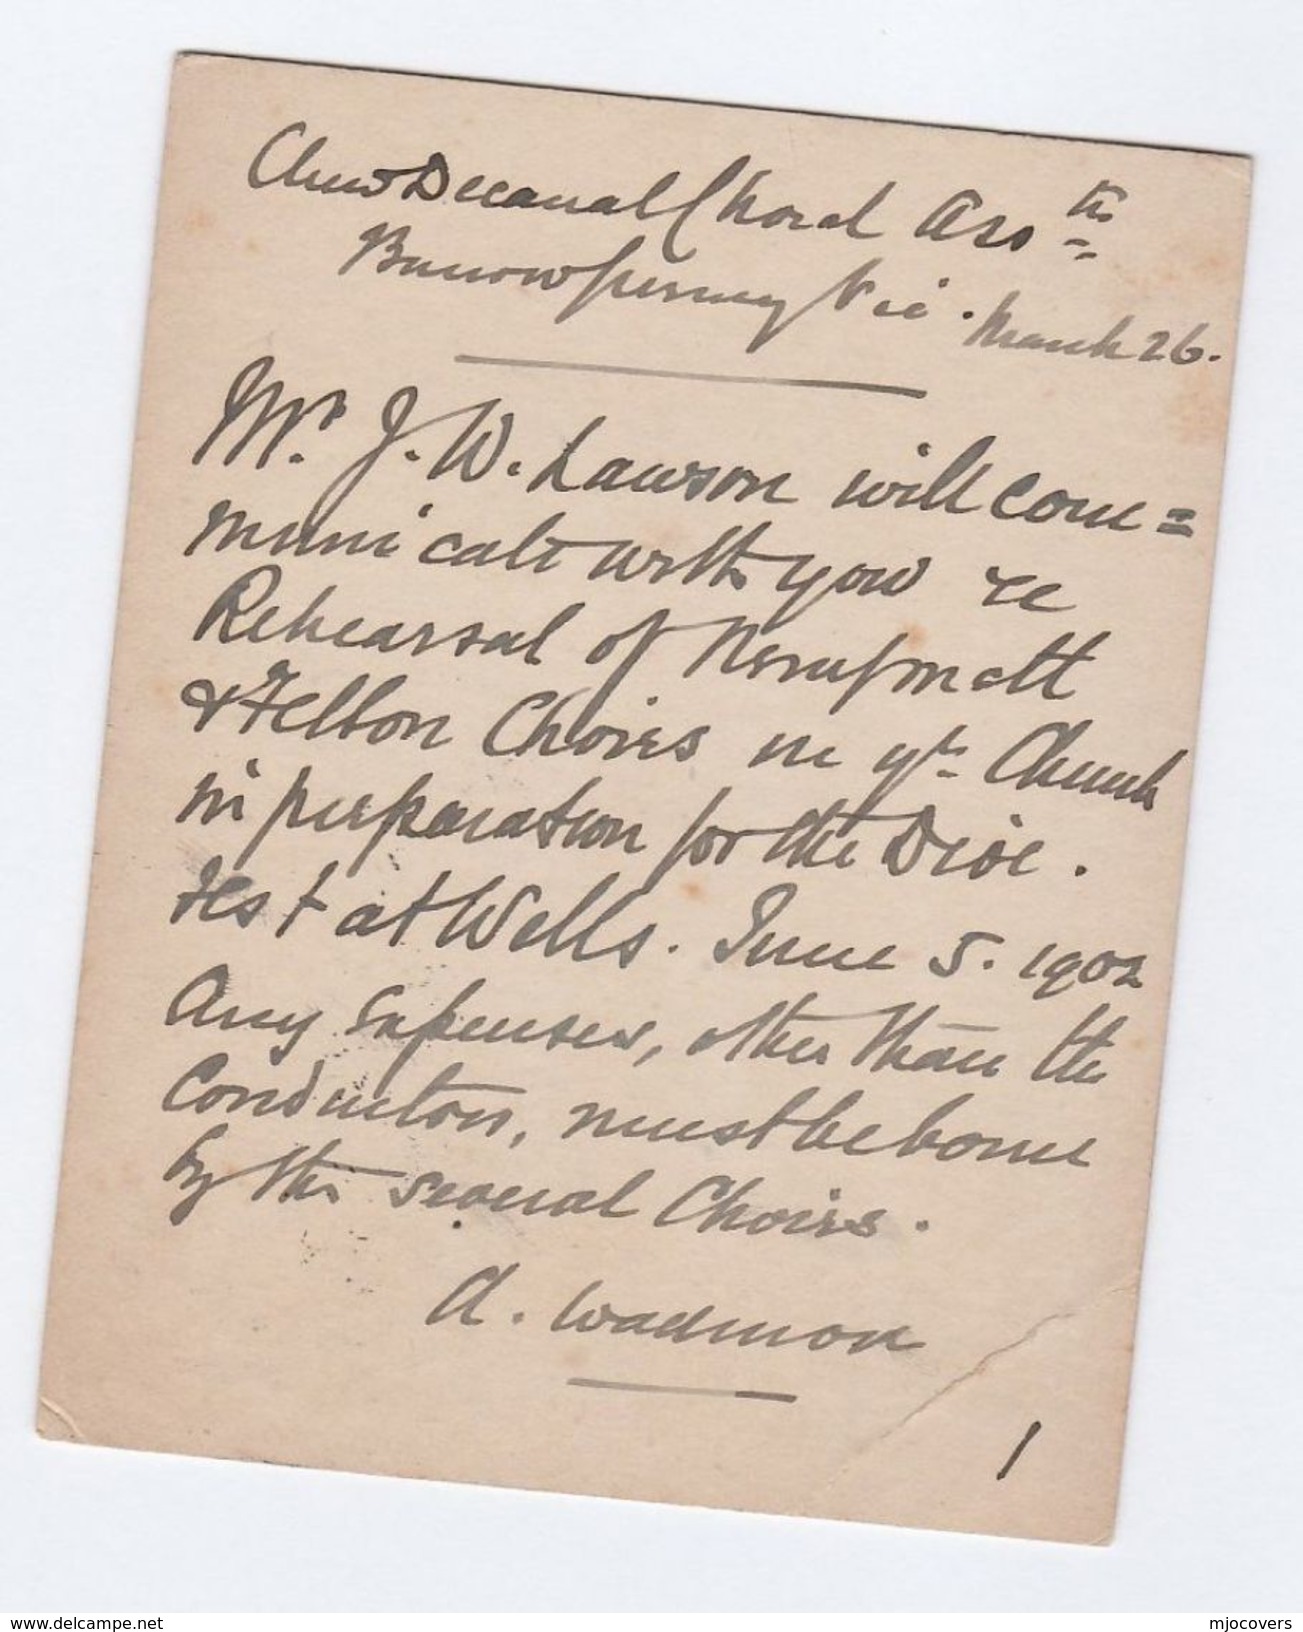 Chew Decanal Choral Asso tn
Barrow Gurney Vic. March 26.
Mr. J. W. Lawson will com=
municate with you re
Rehearsal of Nempnett
& Felton Choirs in yr. Church
in preparation for the Dioc.
Fest at Wells. June 5. 1902
Any expenses, other than the
Conductors, must be borne
by the several Choirs.
A. Wadmore
1
www.delcampe.net
mjocovers